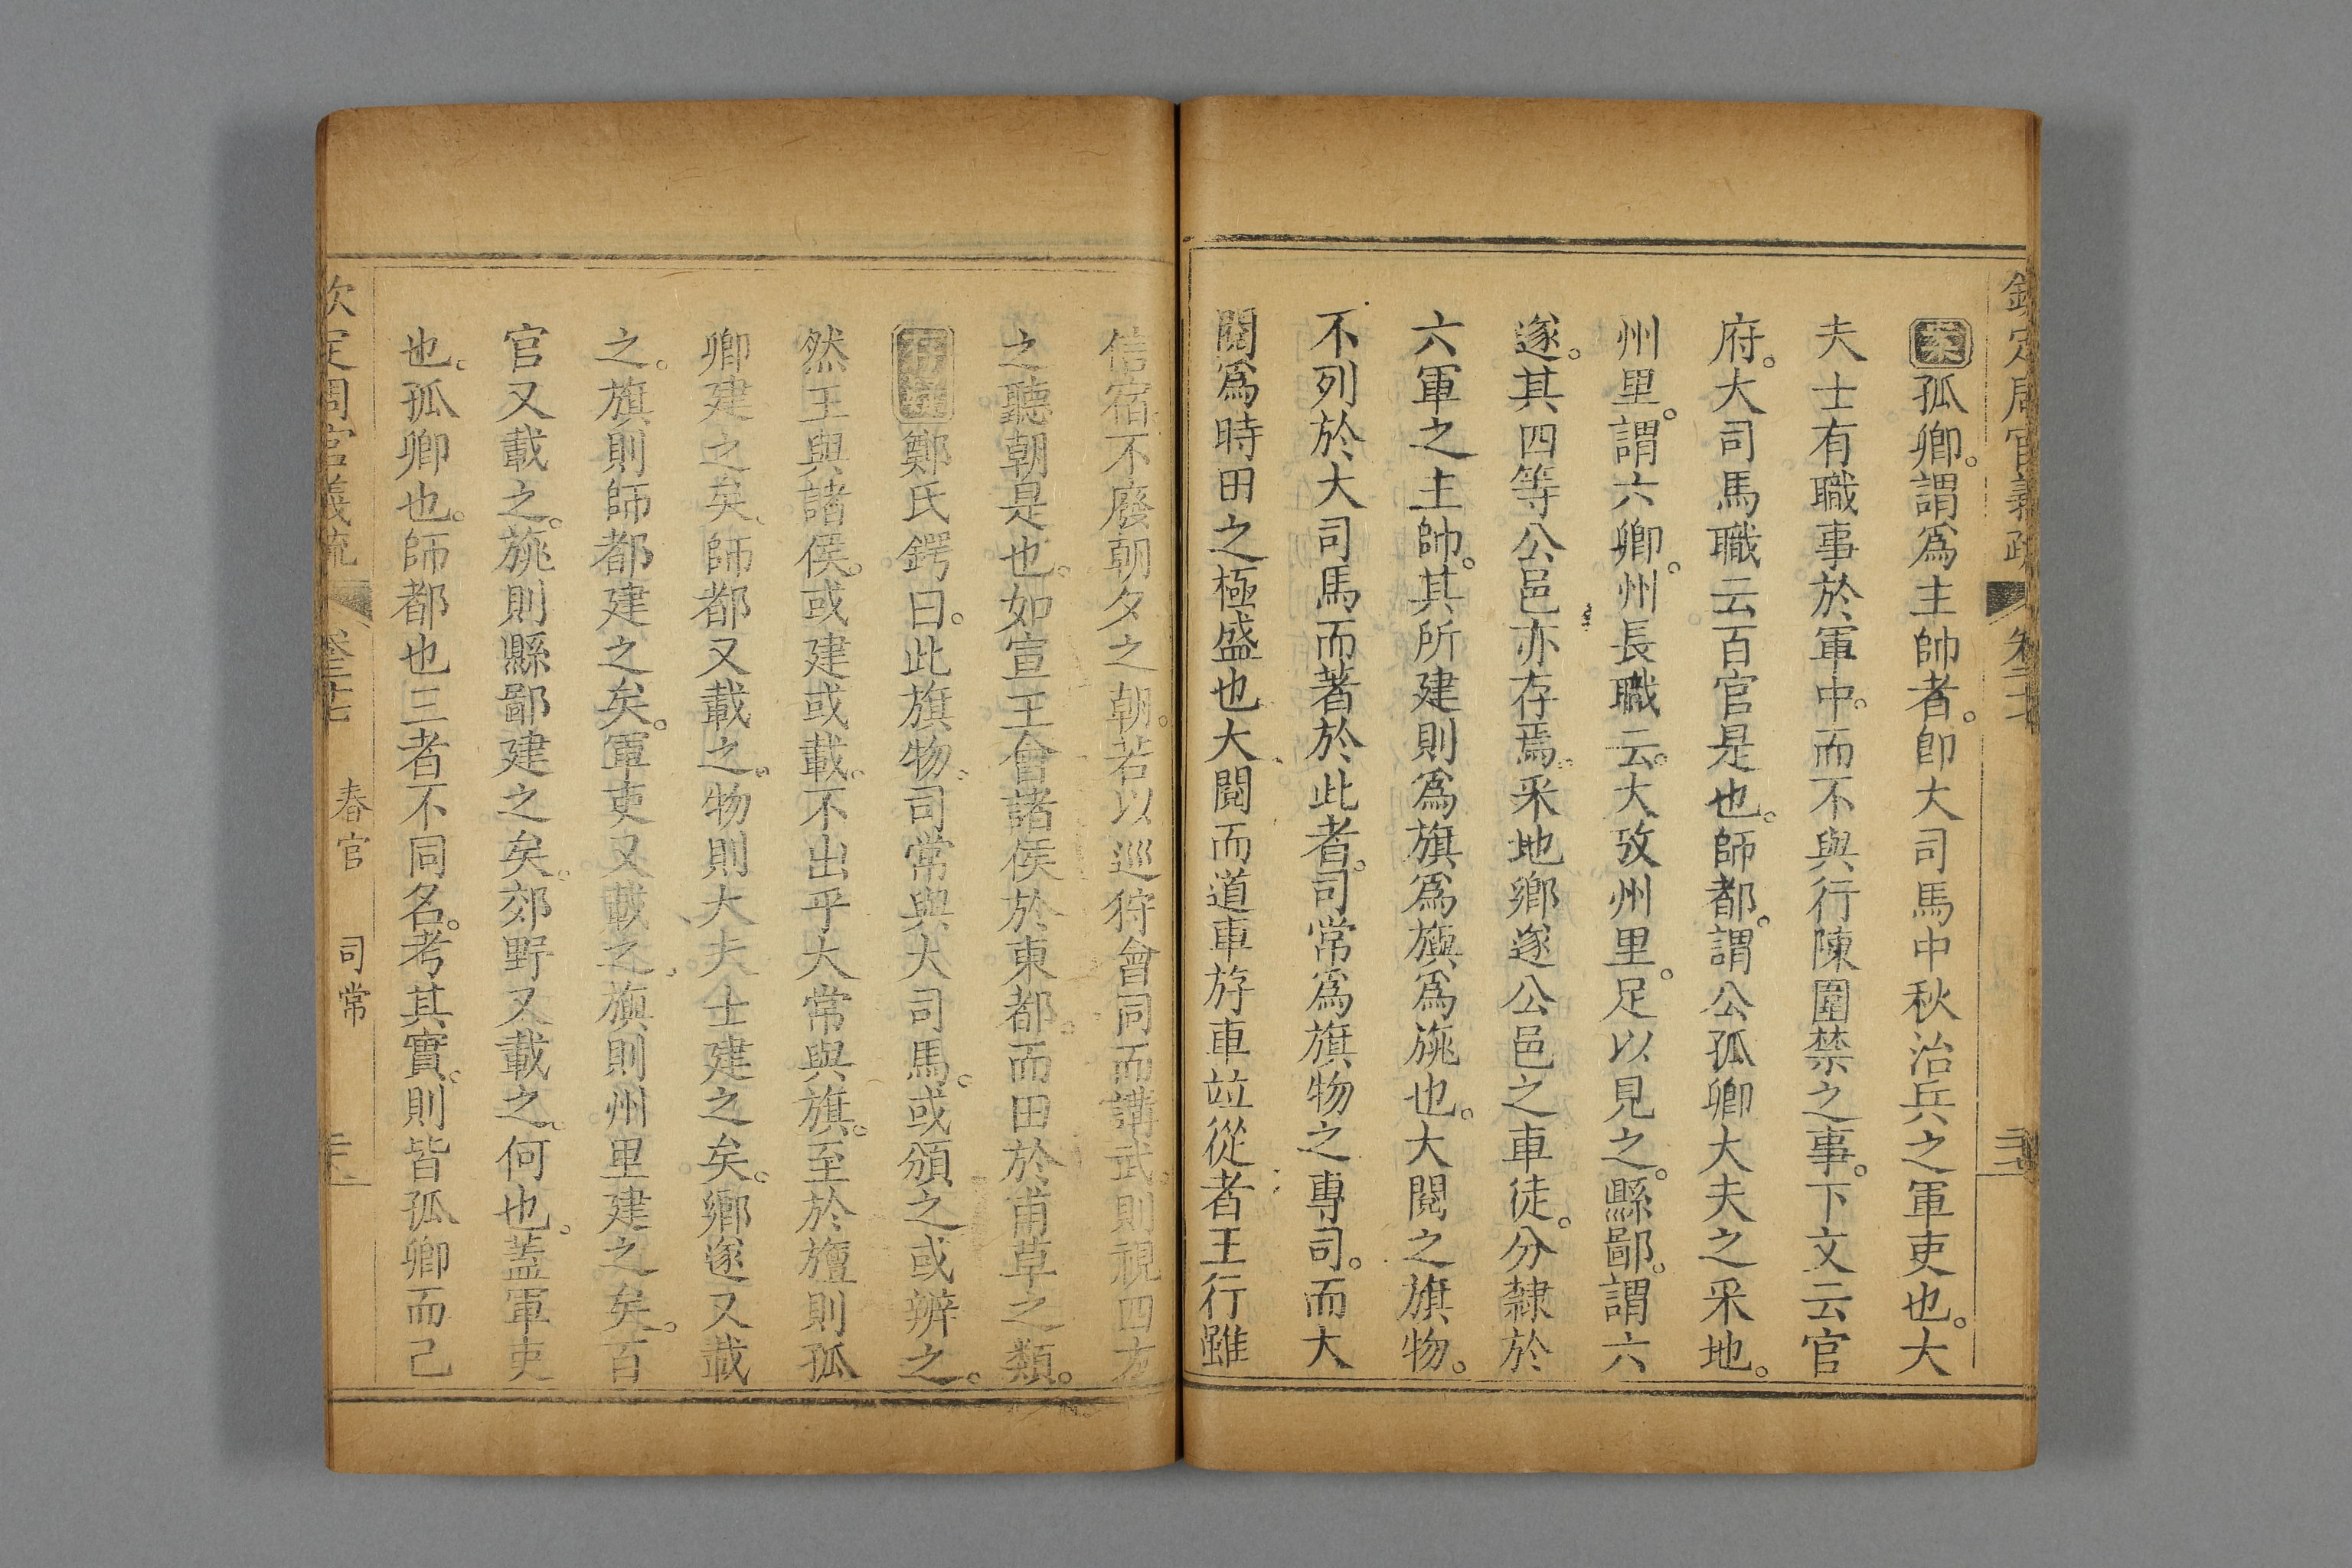 欽定周官義疏 卷二十七
案孤卿。謂爲主帥者。卽大司馬中秋治兵之軍吏也。大
夫士有職事於軍中。而不與行陳圍禁之事。下文云官
府。大司馬職云百官是也。師都。謂公孤卿大夫之采地。
州里。謂六鄉。州長職云。大攷州里。足以見之。縣鄙。謂六
遂。其四等公邑亦存焉。采地鄉遂公邑之車徒。分隸於
六軍之主帥。其所建則爲旗爲旟爲旐也。大閱之旗物。
不列於大司馬而著於此者。司常爲旗物之專司。而大
閱爲時田之極盛也大閱而道車斿車竝從者王行雖
信宿不廢朝夕之朝。若以巡狩會同而講武。則視四方
之聽朝是也。如宣王會諸侯於東都。而田於甫草之類。
鄭氏鍔曰。此旗物。司常與大司馬。或頒之或辨之。
然王與諸侯。或建或載。不出乎大常與旗。至於旜則孤
卿建之矣。師都又載之。物則大夫士建之矣。鄉遂又載
之。旗則師都建之矣。軍吏又載之。旟則州里建之矣。百
官又載之。旐則縣鄙建之矣。郊野又載之。何也。蓋軍吏
也。孤卿也。師都也三者不同名。考其實。則皆孤卿而已
欽定周官義疏 卷二十七 春官 司常